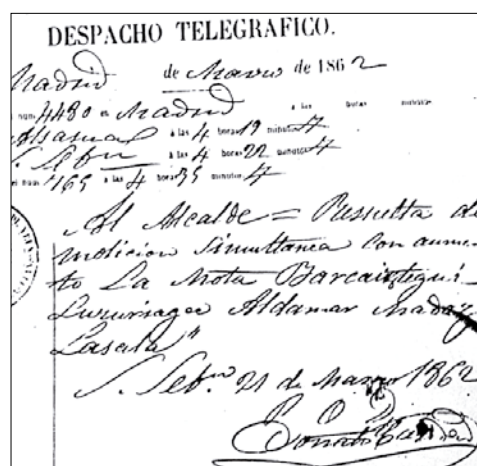 DESPACHO TELEGRAFICO.
Madrid de Marzo de 1862
num. 4480 en Madrid a las horas minutos
Alsasua a las 4 horas 19 minutos
S. Sebn a las 4 horas 22 minutos
el num. 1165 a las 4 horas 35 minutos
Al Alcalde = Ressuelta de
molicion simultanea con aumen
to La Mota Barcaiztegui
Luzuriaga Aldamar Madoz
Lasala"
S. Sebn. 21 de Marzo 1862
P. O.